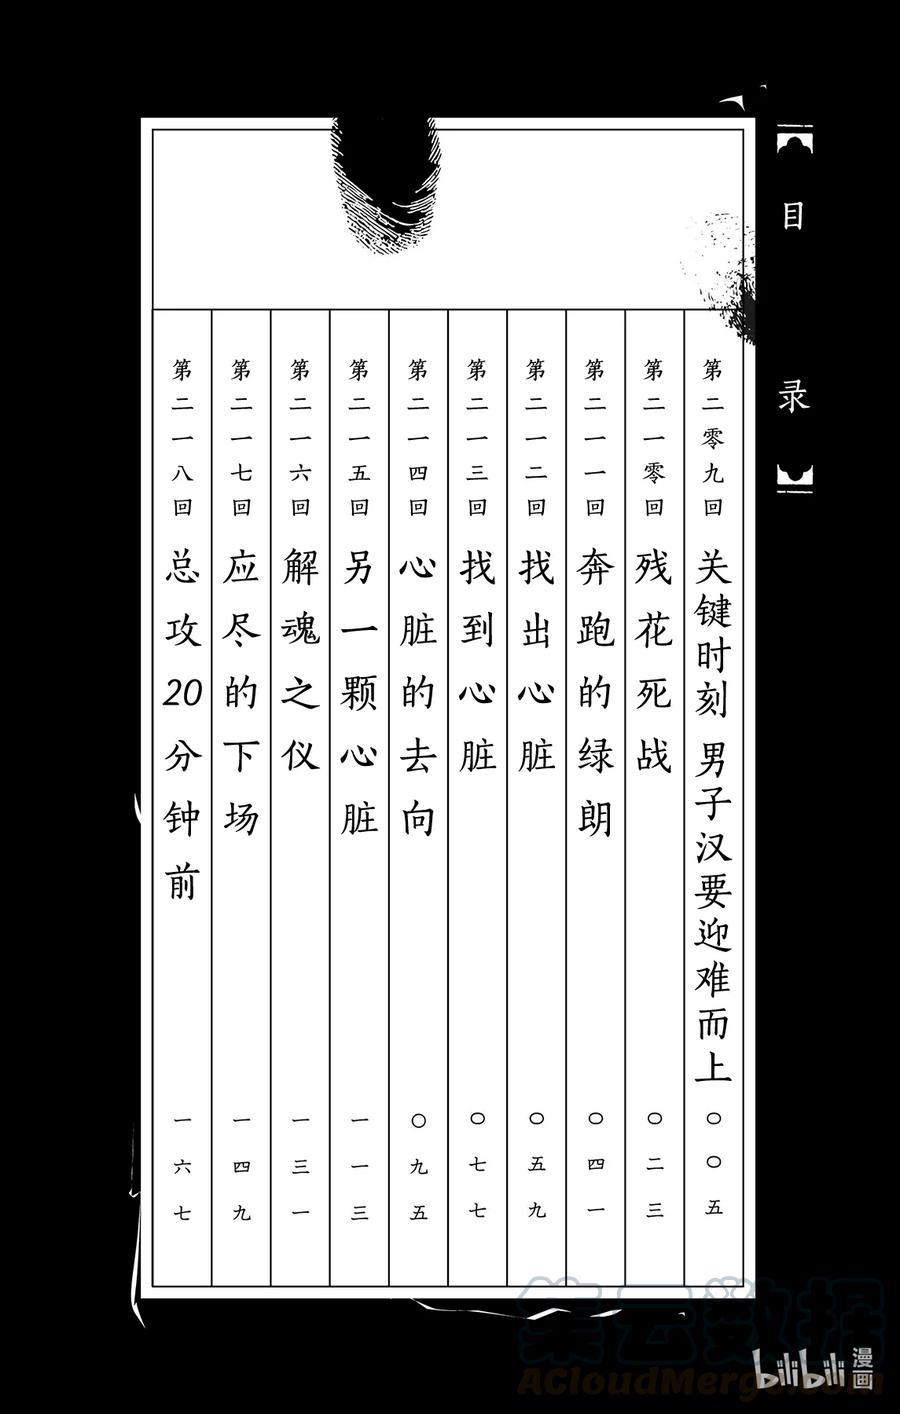 目录
第二零九回 关键时刻 男子汉要迎难而上 〇〇五
第二一零回 残花死战 〇二三
第二一一回 奔跑的绿朗 〇四一
第二一二回 找出心脏 〇五九
第二一三回 找到心脏 〇七七
第二一四回 心脏的去向 〇九五
第二一五回 另一颗心脏 一一三
第二一六回 解魂之仪 一三一
第二一七回 应尽的下场 一四九
第二一八回 总攻20分钟前 一六七
集云数据
ACloudMerge.com
bilibili 漫画